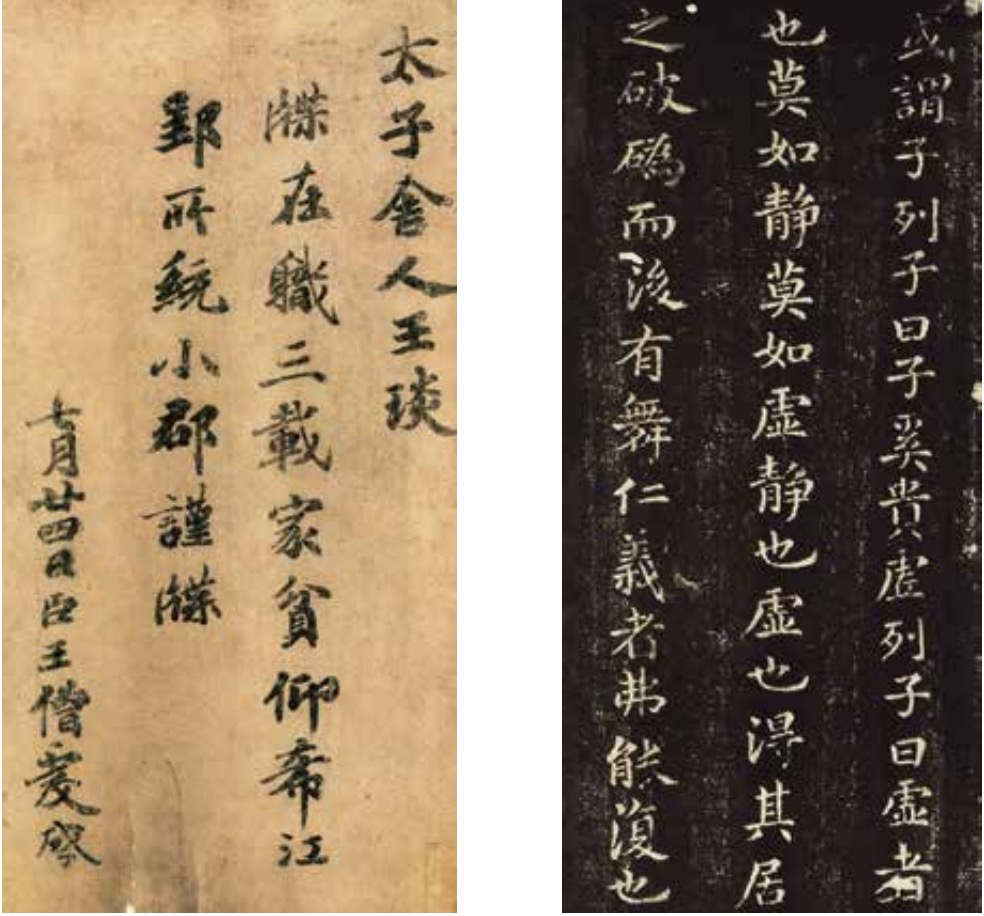 太子舍人王琰
牒在職三載家貧仰希江
郢所統小郡謹牒
七月廿四日臣王僧虔啓
或謂子列子曰子奚貴虚列子曰虚者
也莫如静莫如虚静也虚也得其居
之破䃣而後有舞仁義者弗能復也